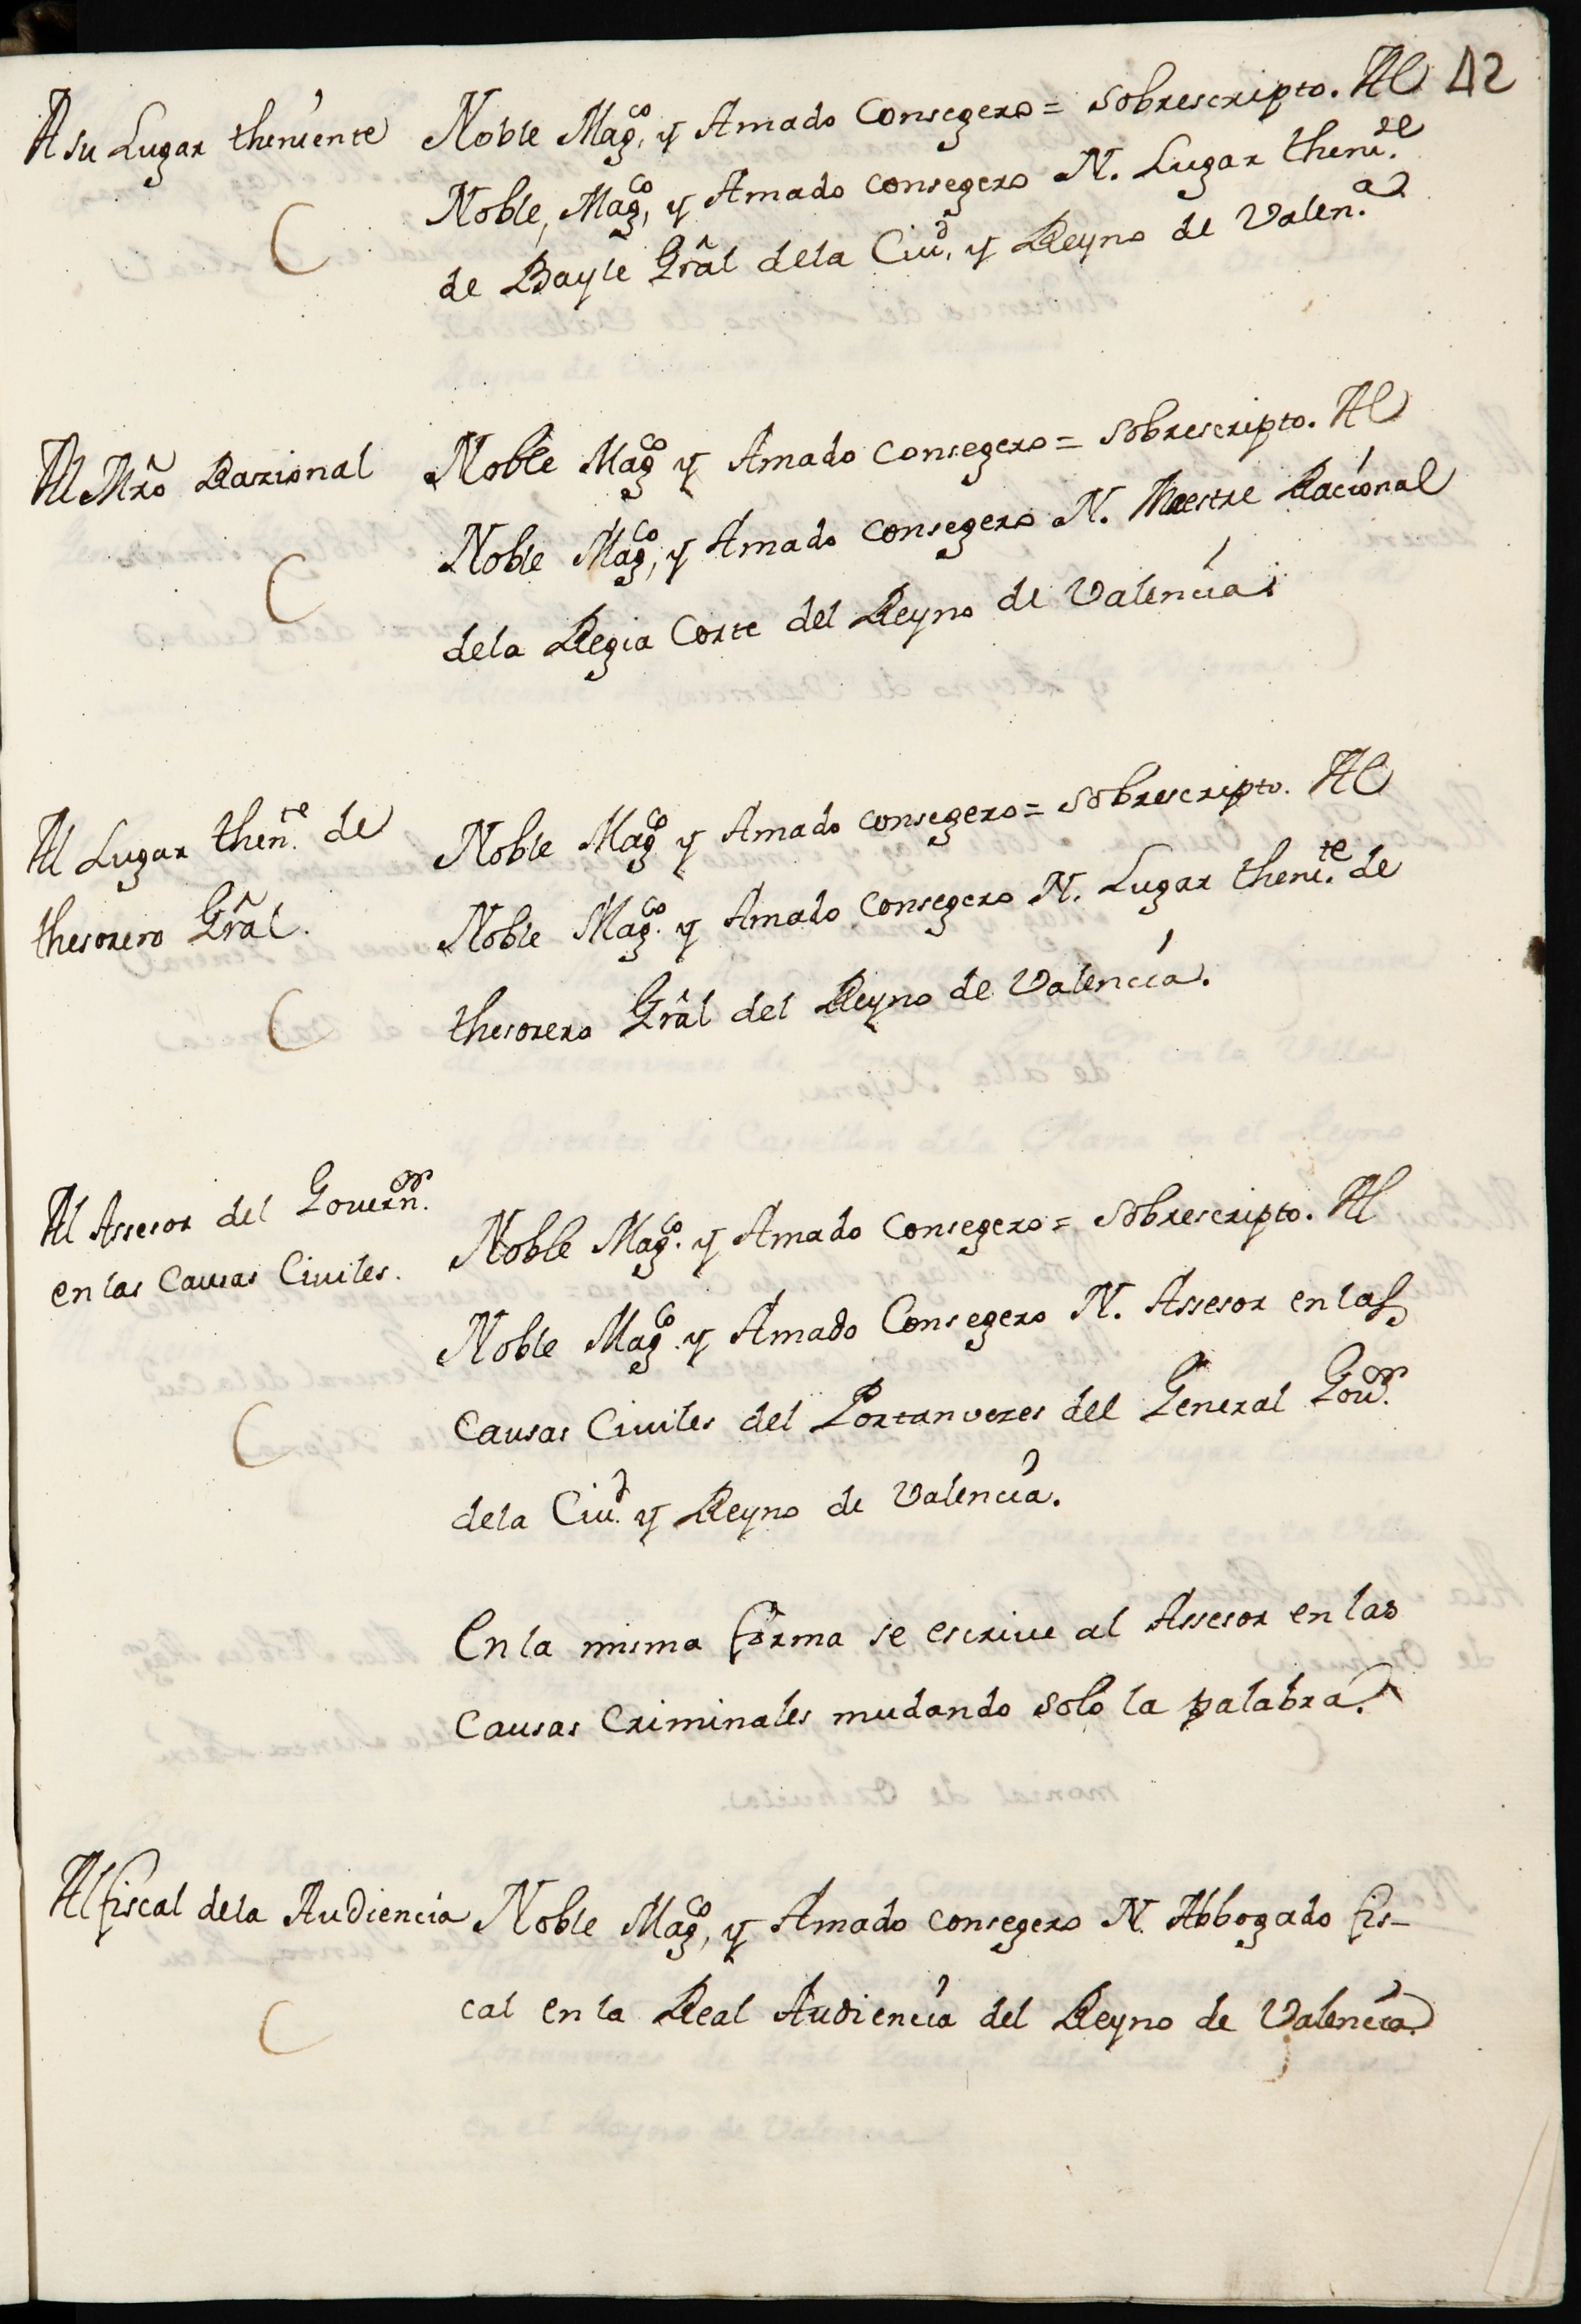 42
A su Lugar theniente
Noble Mag.co, y Amado Consegero = sobrescripto. Al
Noble, Mag.co, y Amado consegero N. Lugar theni.te
de Bayle Grâl dela Ciu.d, y Reyno de Valen.a
C
Al Mrô Razional
Noble Mag.co y Amado consegero = sobrescripto. Al
Noble Mag.co, y Amado consegero N. Maestre Racional
dela Regia Corte del Reyno de Valencia.
C
Al Lugar then.te de
thesorero Grâl.
Noble Mag.co y Amado consegero = sobrescripto. Al
Noble Mag.co y Amado consegero N. Lugar theni.te de
thesorero Grâl del Reyno de Valencia.
C
Al Assesor del Govern.or
en las Causas Civiles.
Noble Mag.co y Amado Consegero = sobrescripto. Al
Noble Mag.co y Amado Consegero N. Assesor en las
Causas Civiles del Portanvezes del General Gov.or
dela Ciu.d y Reyno de Valencia.
C
En la misma forma se escrive al Assesor en las
Causas Criminales mudando solo la palabra.
Al fiscal dela Audiencia
Noble Mag.co, y Amado consegero N. Abbogado fis-
cal en la Real Audiencia del Reyno de Valencia.
C